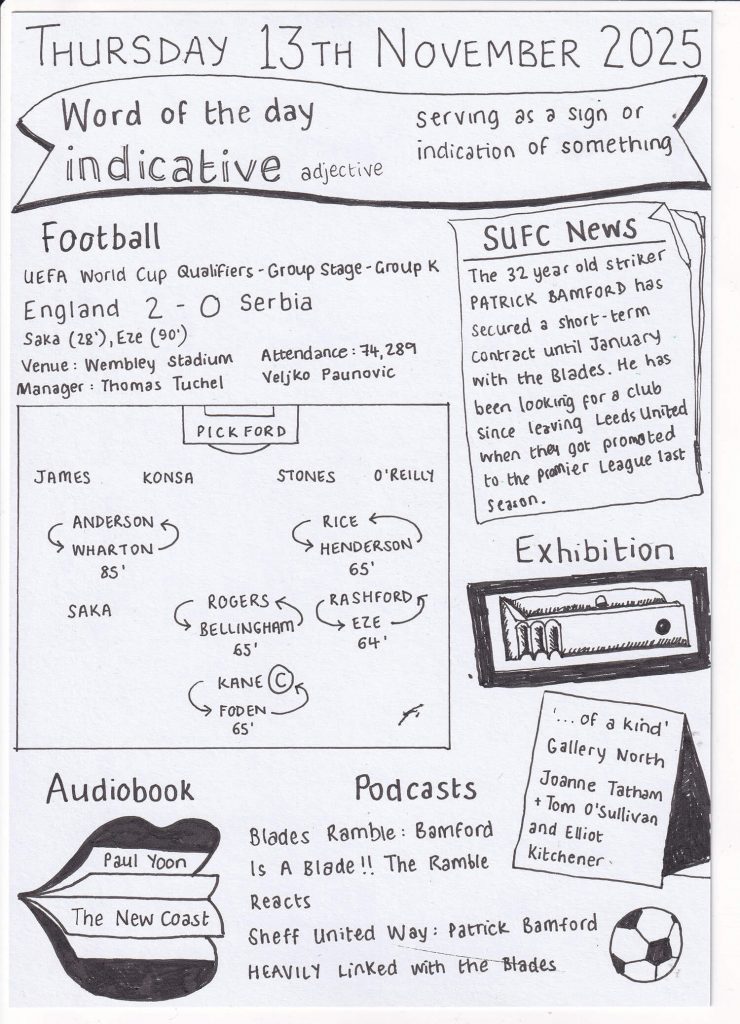 THURSDAY 13TH NOVEMBER 2025
Word of the day
indicative adjective
Serving as a sign or
indication of something
Football
UEFA World Cup Qualifiers - Group Stage - Group K
England 2 - 0 Serbia
Saka (28'), Eze (90')
Venue: Wembley Stadium Attendance: 74,289
Manager: Thomas Tuchel Veljko Paunovic
PICKFORD
JAMES KONSA STONES O'REILLY
ANDERSON RICE
WHARTON HENDERSON
85' 65'
SAKA ROGERS RASHFORD
BELLINGHAM EZE
65' 64'
KANE C
FODEN
65'
SUFC News
The 32 year old striker
PATRICK BAMFORD has
secured a short-term
contract until January
with the Blades. He has
been looking for a club
since leaving Leeds United
when they got promoted
to the Premier League last
season.
Exhibition
'... of a kind'
Gallery North
Joanne Tatham
+ Tom O'Sullivan
and Elliot
Kitchener.
Audiobook
Paul Yoon
The New Coast
Podcasts
Blades Ramble: Bamford
Is A Blade!! The Ramble
Reacts
Sheff United Way: Patrick Bamford
HEAVILY Linked with the Blades